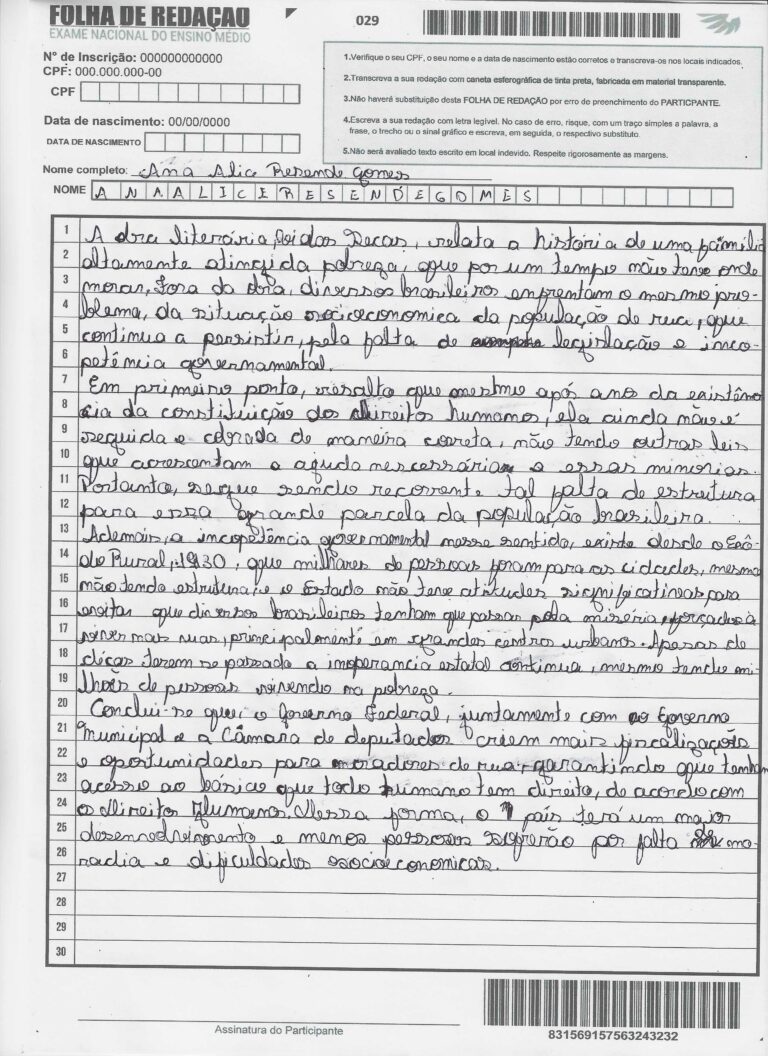 FOLHA DE REDAÇÃO
EXAME NACIONAL DO ENSINO MÉDIO
029
N° de Inscrição: 000000000000
CPF: 000.000.000-00
CPF
Data de nascimento: 00/00/0000
DATA DE NASCIMENTO
1.Verifique o seu CPF, o seu nome e a data de nascimento estão corretos e transcreva-os nos locais indicados.
2.Transcreva a sua redação com caneta esferográfica de tinta preta, fabricada em material transparente.
3.Não haverá substituição desta FOLHA DE REDAÇÃO por erro de preenchimento do PARTICIPANTE.
4.Escreva a sua redação com letra legível. No caso de erro, risque, com um traço simples a palavra, a
frase, o trecho ou o sinal gráfico e escreva, em seguida, o respectivo substituto.
5.Não será avaliado texto escrito em local indevido. Respeite rigorosamente as margens.
Nome completo: Ana Alice Resende Gomes
NOME ANA ALICE RESENDE GOMES
1 A obra literária, relata a história de uma família
2 altamente atingida pobreza, que por um tempo não teve onde
3 morar, fora da obra, diversos brasileiros enfrentam o mesmo pro-
4 blema, da situação socioeconomica da população de rua, que
5 continua a persistir, pela falta de legislação e inco-
6 petência governamental.
7 Em primeiro ponto, resalto que mesmo após ano da existên
8 cia da constituição dos direitos humanos, ela ainda não é
9 seguida e cobrada de maneira correta, não tendo outras leis
10 que acrescentam a ajuda nescessárian a essas minorias.
11 Portanto, segue sendo recorrente tal falta de estrutura
12 para essa grande parcela da população brasileira.
13 Ademais, a incopetência governamental nesse sentido, existe desde o Exô-
14 do Rural, 1930, que milhares de pessoas foram para as cidades, mesmo
15 não tendo estrutura, e o Estado não teve atitudes significativas para
16 evitar que diversos brasileiros tenham que passar pela miséria, forçados a
17 viver nas ruas, principalmente em grandes centros urbanos. Apesar de
18 décas terem se passado a inoperancia estatal continua, mesmo tendo mi-
19 lhões de pessoas vivendo na pobreza.
20 Conclui-se que o Governo Federal, juntamente com o Governo
21 Municipal e a Câmara de deputados criem mais fiscalizações
22 e oportunidades para moradores de rua, garantindo que tenham
23 acesso ao básico que todo humano tem direito, de acordo com
24 os direitos Humanos. Dessa forma, o país terá um maior
25 desenvolvimento e menos pessoas sofrerão por falta mo-
26 radia e dificuldades socioeconomicas.
27
28
29
30
Assinatura do Participante
831569157563243232